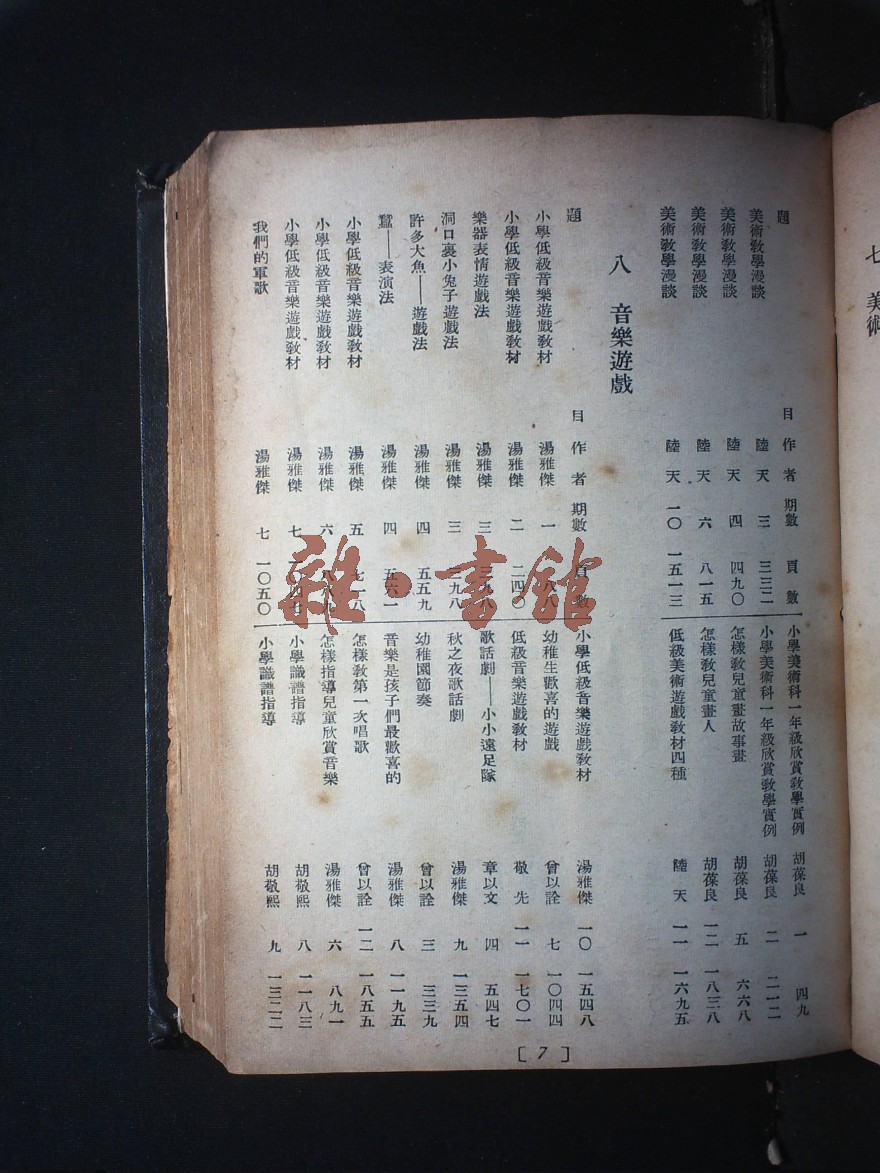 七 美術
題 目 作 者 期數 頁 數
美術敎學漫談 陸 天 三 三三二
美術敎學漫談 陸 天 四 四九〇
美術敎學漫談 陸 天 六 八一五
美術敎學漫談 陸 天 一〇 一五一三
小學美術科一年級欣賞敎學實例 胡葆良 一 四九
小學美術科一年級欣賞敎學實例 胡葆良 二 二一二
怎樣敎兒童畫故事畫 胡葆良 五 六六八
怎樣敎兒童畫人 胡葆良 一二 一八三八
低級美術遊戲敎材四種 陸 天 一一 一六九五
八 音樂遊戲
題 目 作 者 期數 頁 數
小學低級音樂遊戲敎材 湯雅傑 一
小學低級音樂遊戲敎材 湯雅傑 二 二四〇
樂器表情遊戲法 湯雅傑 三
洞口裏小兔子遊戲法 湯雅傑 三 三九八
許多大魚——遊戲法 湯雅傑 四 五五九
蠶——表演法 湯雅傑 四 五六一
小學低級音樂遊戲敎材 湯雅傑 五
小學低級音樂遊戲敎材 湯雅傑 六
小學低級音樂遊戲敎材 湯雅傑 七
我們的軍歌 湯雅傑 七 一〇五〇
小學低級音樂遊戲敎材 湯雅傑 一〇 一五四八
幼稚生歡喜的遊戲 曾以詮 七 一〇四四
低級音樂遊戲敎材 敬 先 一一 一七〇一
歌話劇——小小遠足隊 章以文 四 五四七
秋之夜歌話劇 湯雅傑 九 一三五四
幼稚園節奏 曾以詮 三 三三九
音樂是孩子們最歡喜的 湯雅傑 八 一一九五
怎樣敎第一次唱歌 曾以詮 一二 一八五五
怎樣指導兒童欣賞音樂 湯雅傑 六 八九一
小學識譜指導 胡敬熙 八 一一八三
小學識譜指導 胡敬熙 九 一三二二
[7]
雜·書館